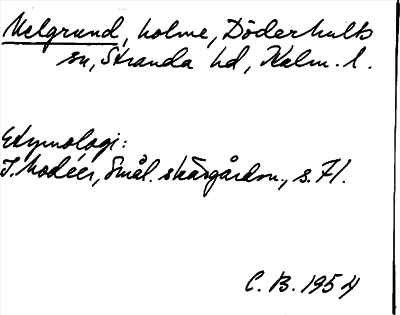 Melgrund, holme, Döderhults
sn, Stranda hd, Kalm. l.
Etymologi:
I. Modéer, Smål. skärgårdsn., s. 71.
C. B. 1954